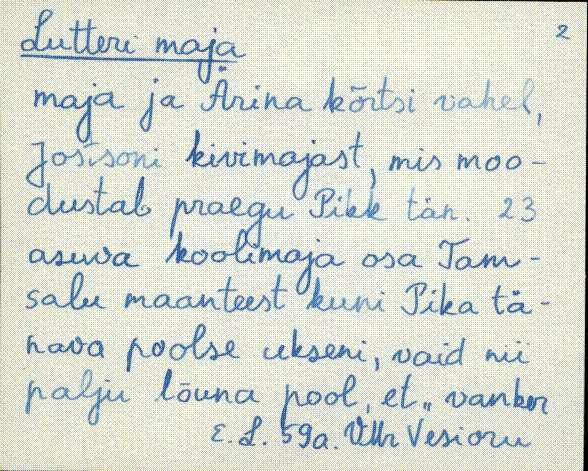 2
Lutteri maja
maja ja Ärina kõrtsi vahel,
kivimajast, mis moo-
dustab praegu Pikk tän. 23
asuva koolimaja osa Tam-
salu maanteest kuni Pika tä-
nava poolse ukseni, vaid nii
palju lõuna pool, et „vanker
E. L. 59a. V-Mr Vesioru